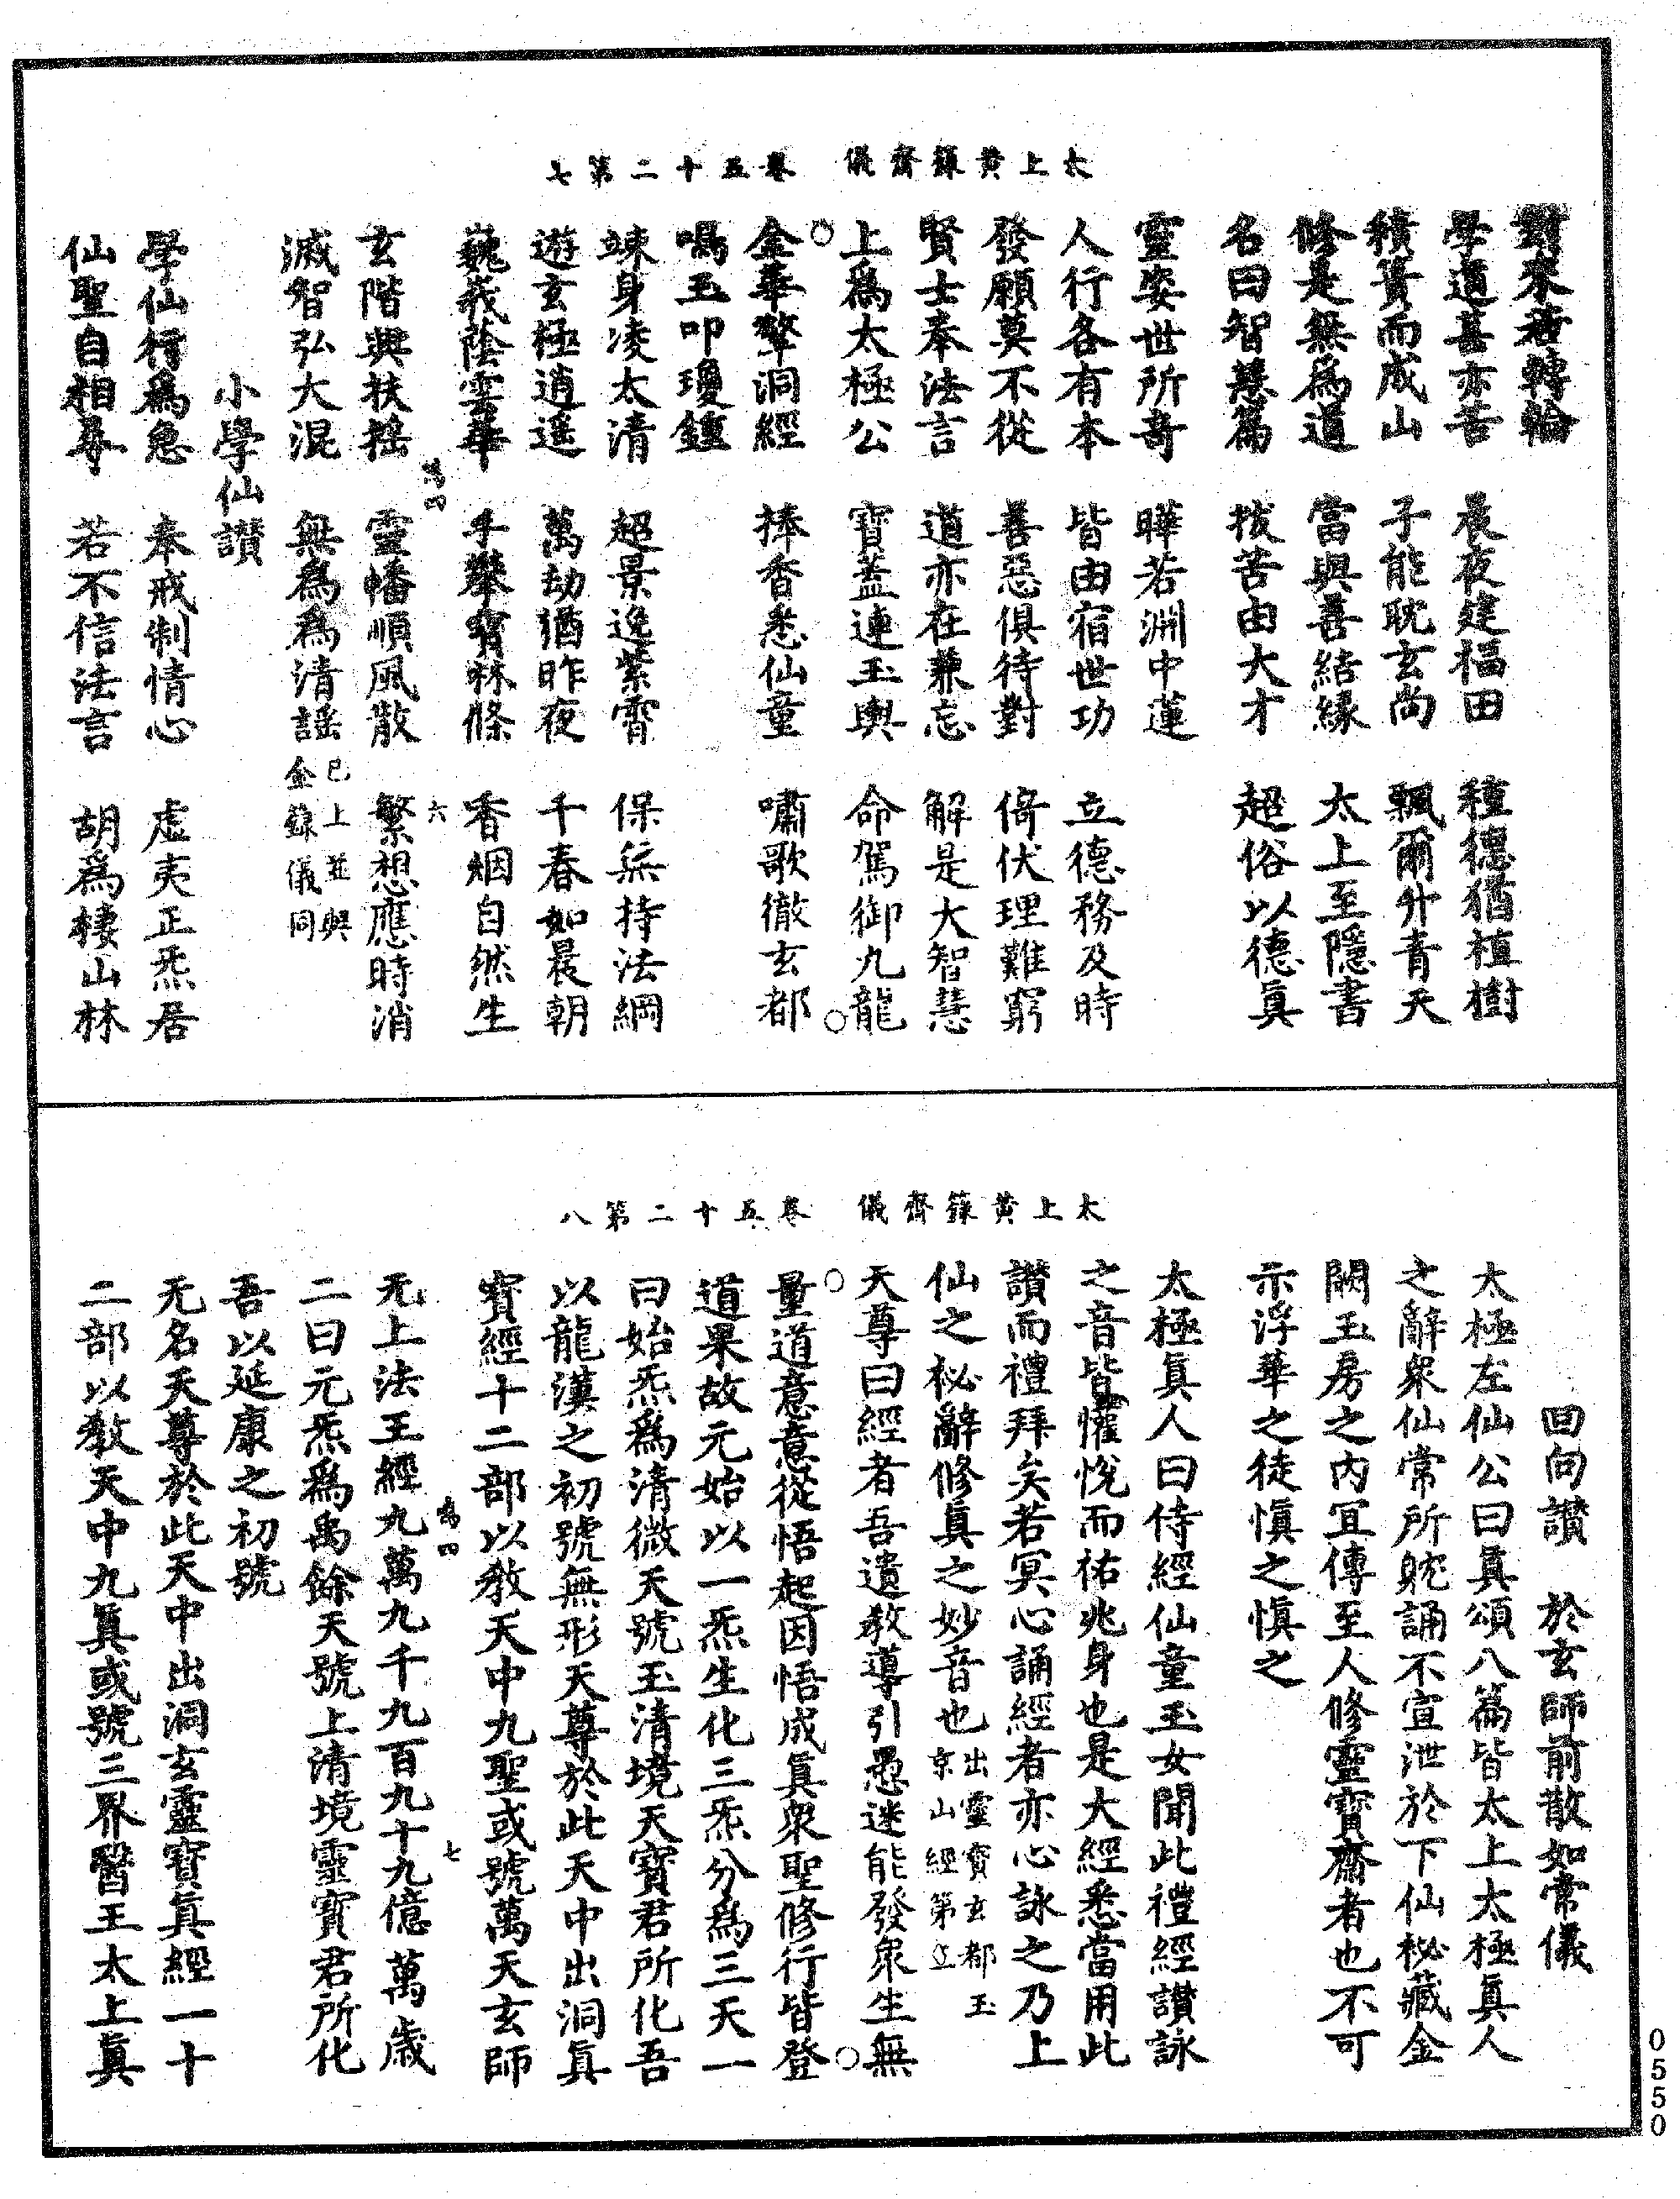 太上黃籙齋儀　卷五十二第七
對來若轉輪
學道甚亦苦　晨夜建福田　種德猶植樹
積簣而成山　子能耽玄尚　飄爾升青天
修是無為道　當與善結緣　太上至隱書
名曰智慧篇　拔苦由大才　超俗以德真
靈姿世所奇　曄若淵中蓮
人行各有本　皆由宿世功　立德務及時
發願莫不從　善惡俱待對　倚伏理難窮
賢士奉法言　道亦在兼忘　解是大智慧
上為太極公　寶蓋連玉輿　命駕御九龍
金華擎洞經　捧香悉仙童　嘯歌徹玄都
鳴玉叩瓊鍾
竦身凌太清　超景逸紫霄　保無持法綱
遊玄極逍遥　萬劫猶昨夜　千春如晨朝
巍峩蔭雲華　手攀寶林條　香烟自然生
為四　六
玄階興扶搖　靈幡順風散　繁想應時消
滅智弘大混　無為為清謠　已上並與金籙儀同
小學仙讚
學仙行為急　奉戒制情心　虛夷正炁居
仙聖自相尋　若不信法言　胡為棲山林
太上黃籙齋儀　卷五十二第八
回向讚　於玄師前散如常儀
太極左仙公曰真頌八篇皆太上太極真人
之辭衆仙常所躭誦不宣泄於下仙祕藏金
闕玉房之內宜傳至人修靈寶齋者也不可
示浮華之徒慎之慎之
太極真人曰侍經仙童玉女聞此禮經讚詠
之音皆懽悅而祐兆身也是大經悉當用此
讚而禮拜矣若冥心誦經者亦心詠之乃上
仙之祕辭修真之妙音也　出靈寶玄都玉京山經第
天尊曰經者吾遺教導引愚迷能發衆生無
量道意意從悟起因悟成真衆聖修行皆登
道果故元始以一炁生化三炁分為三天一
曰始炁為清微天號玉清境天寶君所化吾
以龍漢之初號無形天尊於此天中出洞真
寶經十二部以教天中九聖或號萬天玄師
為四　七
无上法王經九萬九千九百九十九億萬歲
二曰元炁為禹餘天號上清境靈寶君所化
吾以延康之初號
无名天尊於此天中出洞玄靈寶真經一十
二部以教天中九真或號三界醫王太上真
0550